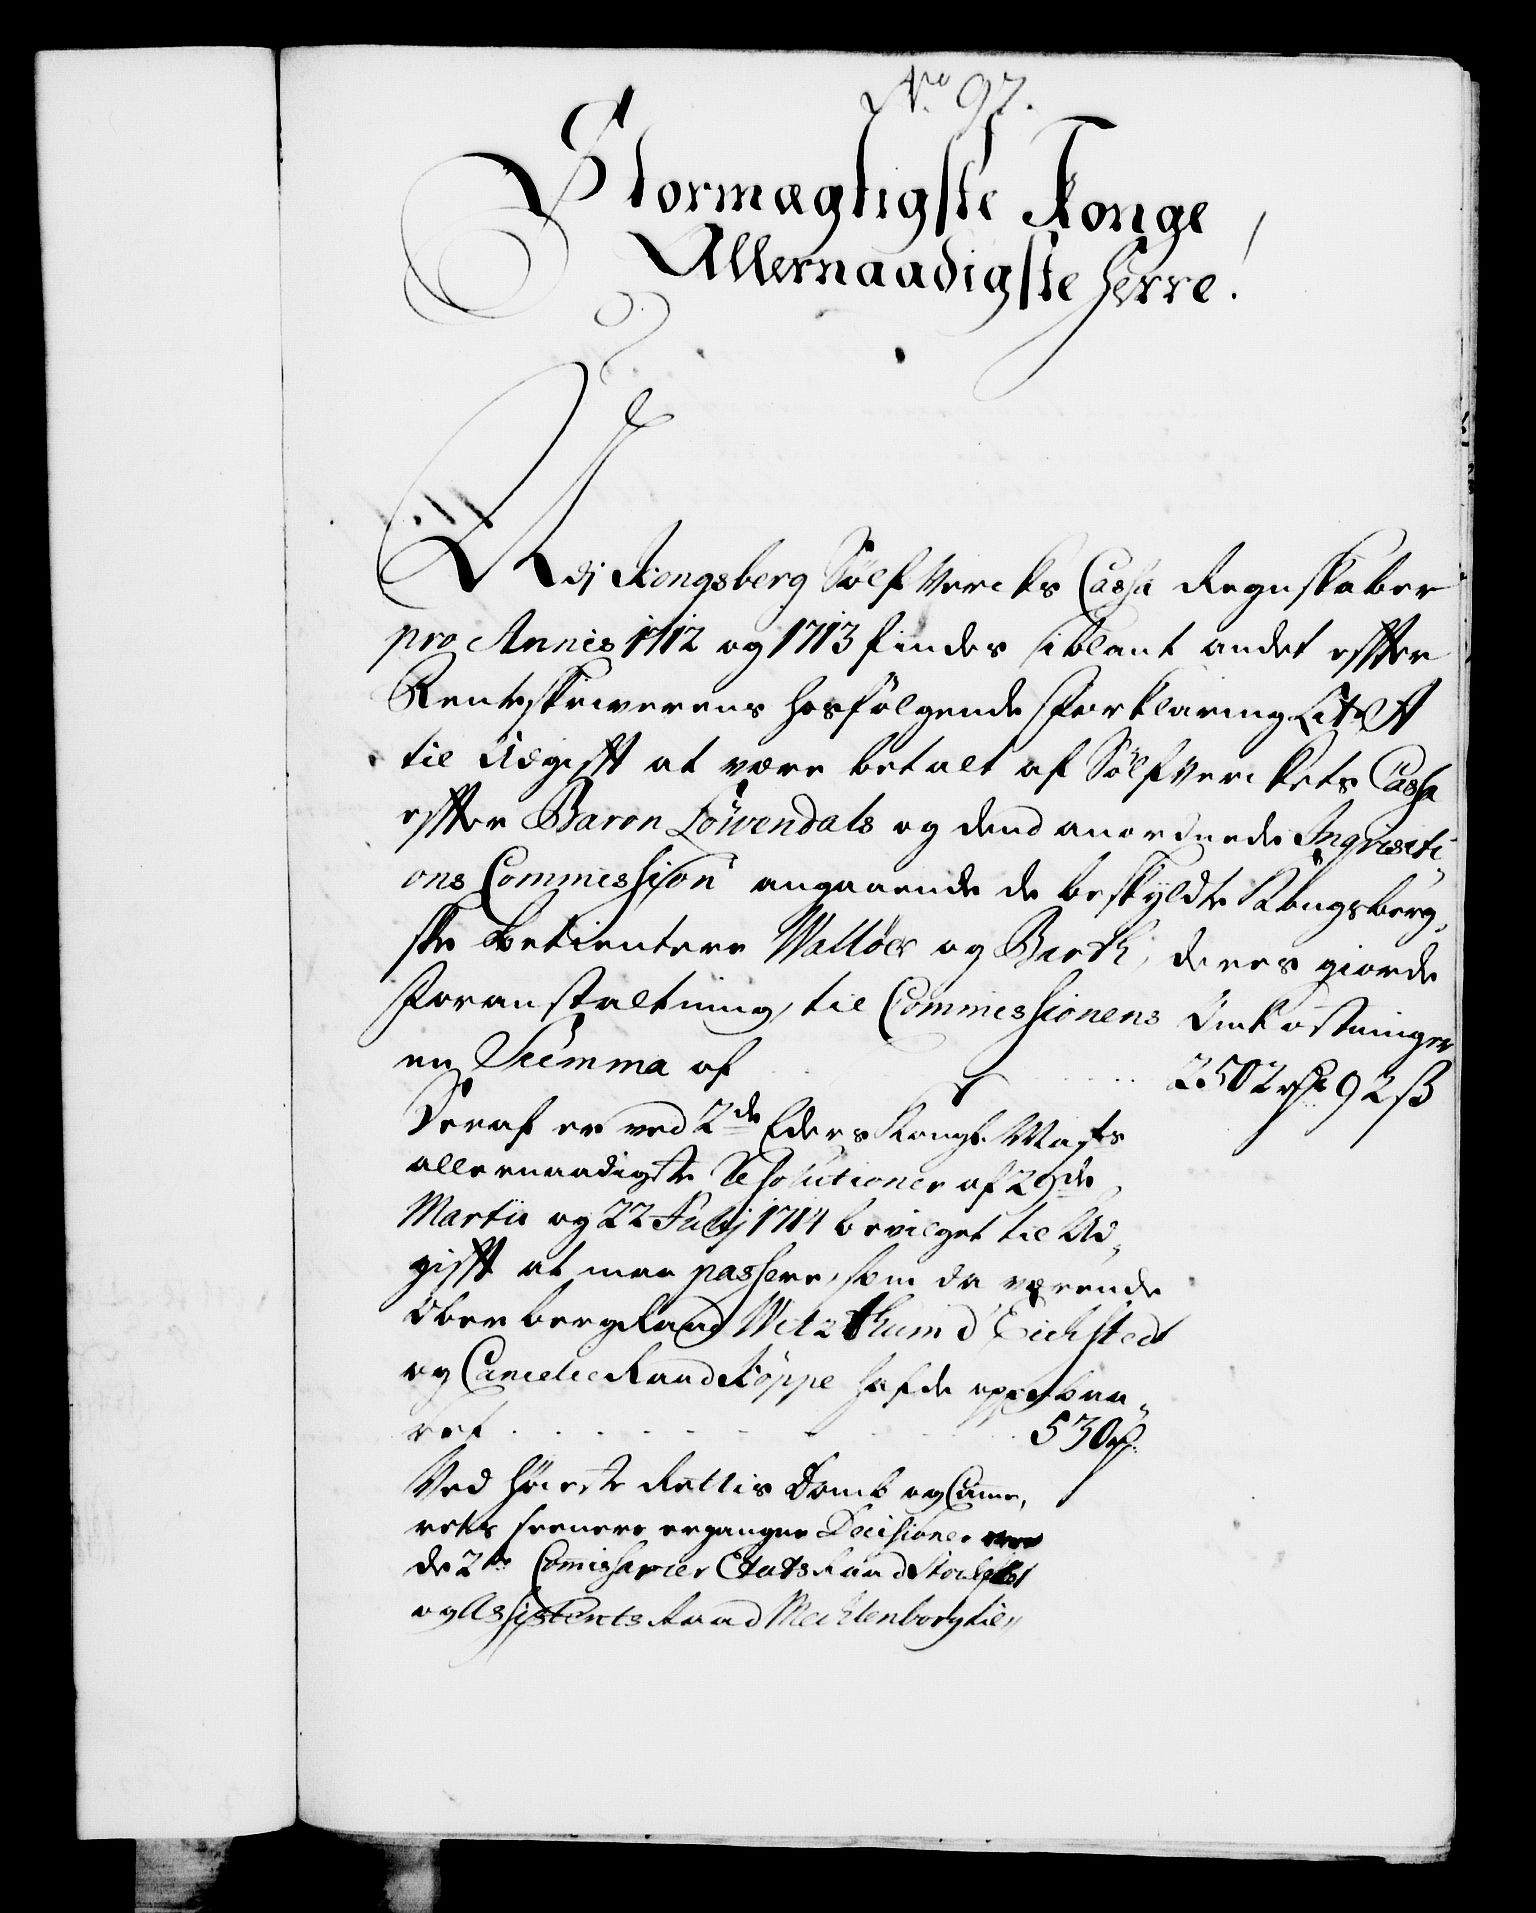 No 97.
Stormægtigste Konge
Allernaadigste Herre!
Udj Kongsberg Sölfvercks Cassa Regnskaber
pro Annis 1712 og 1713 findes iblant andet effter
Renteskriverens hosfölgende Forklaring Lit. A
til Udgifft at være betalt af Sölfverckets Cassa
effter Baron Löwendals og dend anordnede Inqvisiti-
ons Commission angaaende de beskyldte Kongsberg-
ske betientere Walloer og Barth, deres giorde
Foranstaltning, til Commissionens Omkostninger
en Summa af . . . 2502 rdr 92 ß
Deraf er ved 2de Eders Kongl. Mayts
allernaadigste Resolutioner af 29de
Martii og 22 Julij 1714 bevilget til Ud-
gifft at maa passere, som da værende
Oberbergraad Witzthum d' Eichstedt
og Cancelie Raad Köppe hafde oppebaa-
ret . . . 530 rdr
Ved Höieste Rettis Domb og Camme-
rets seenere ergangne Decisioner
de 2de Comissarier Etats Raad
og Assistents Raad Mecklenborg til-